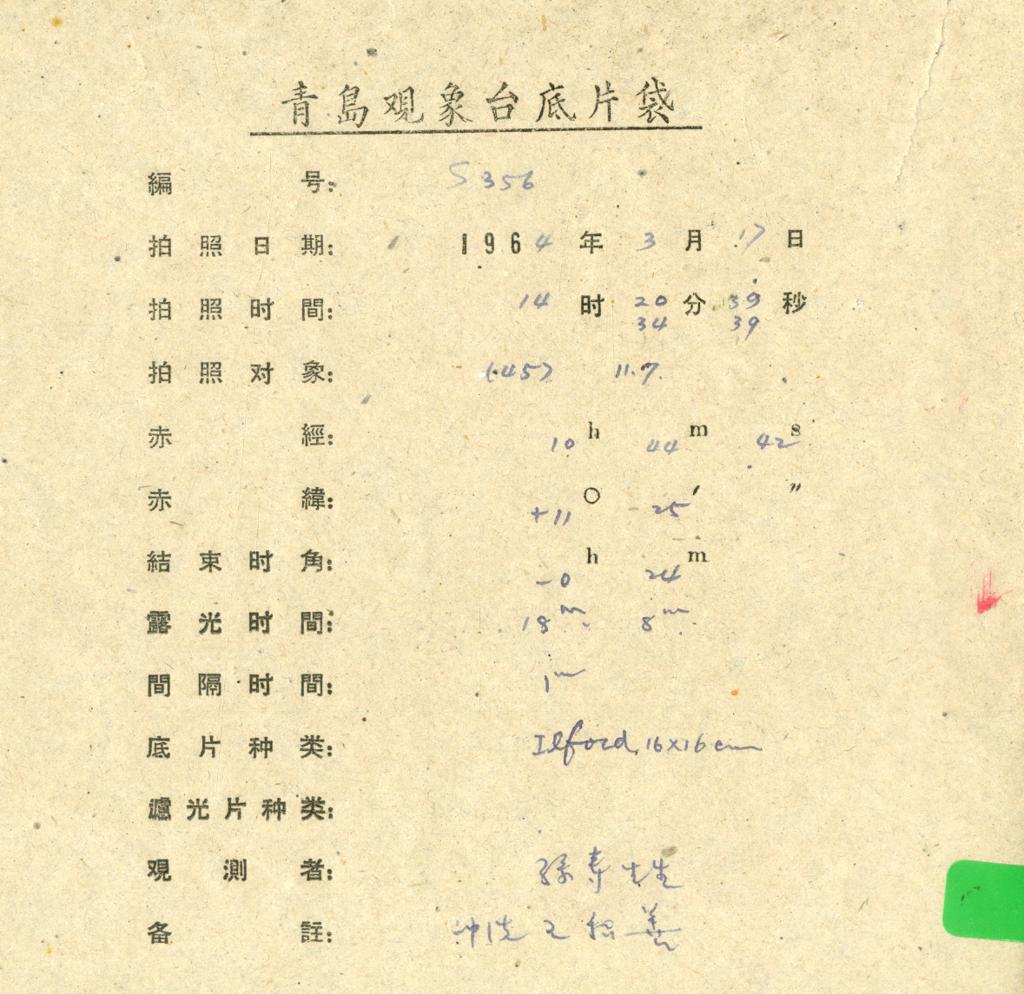 青島观象台底片袋
編号: S356
拍照日期: 1964年3月17日
拍照时間: 14时20分39秒
34 39
拍照对象: (45) 11.7
赤經: 10h 44m 42s
赤緯: +11° 25′ ″
結束时角: -0h 24m
露光时間: 18m 8m
間隔时間: 1m
底片种类: Ilford, 16×16cm
濾光片种类:
观測者: 孫寿先生
备註: 冲洗 王 善